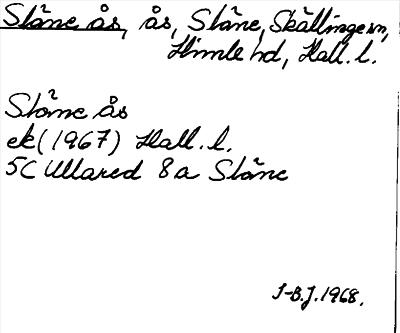 Släne ås, ås, Släne, Skällinge sn,
Himle hd, Hall. l.
Släne ås
ek (1967) Hall. l.
5C Ullared 8a Släne
I-B.J. 1968.